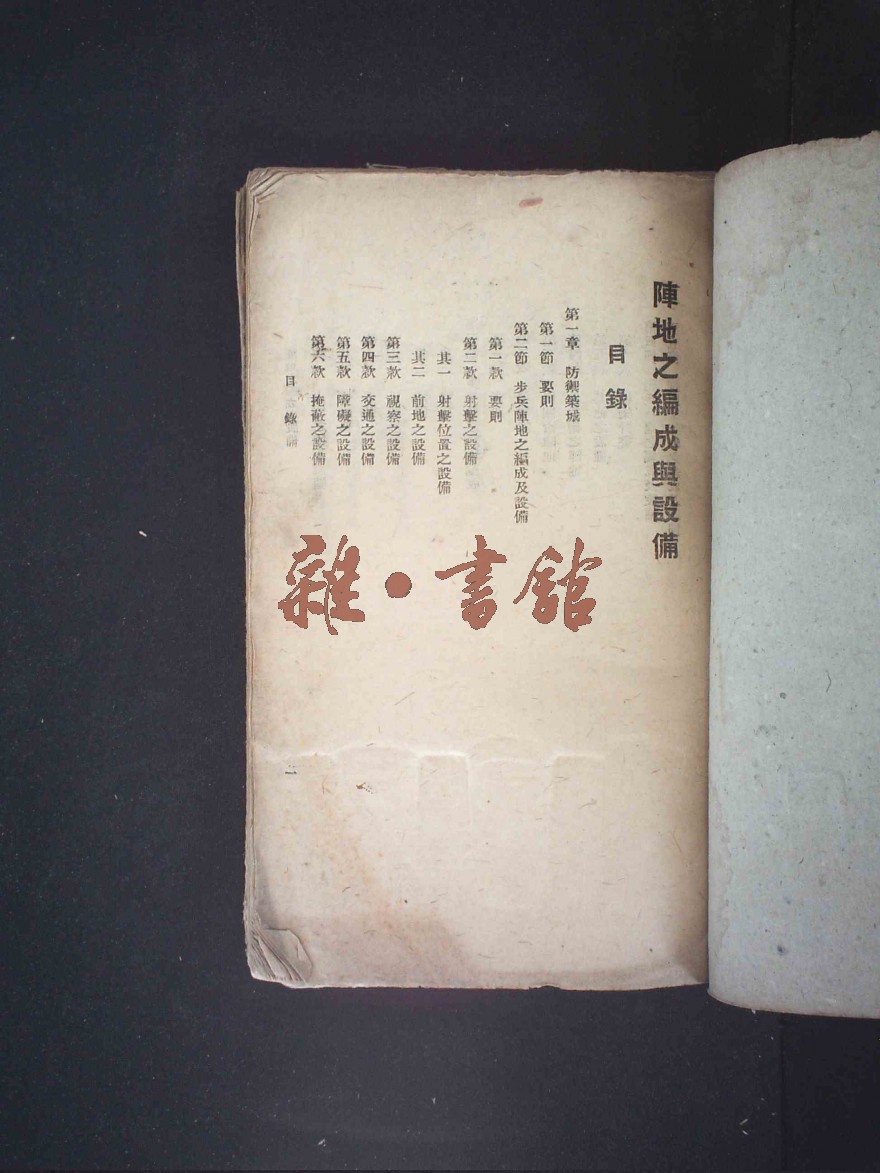 陣地之編成與設備
目錄
第一章 防禦築城
第一節 要則
第二節 步兵陣地之編成及設備
第一款 要則
第二款 射擊之設備
其一 射擊位置之設備
其二 前地之設備
第三款 視察之設備
第四款 交通之設備
第五款 障礙之設備
第六款 掩蔽之設備
目錄
雜·書館